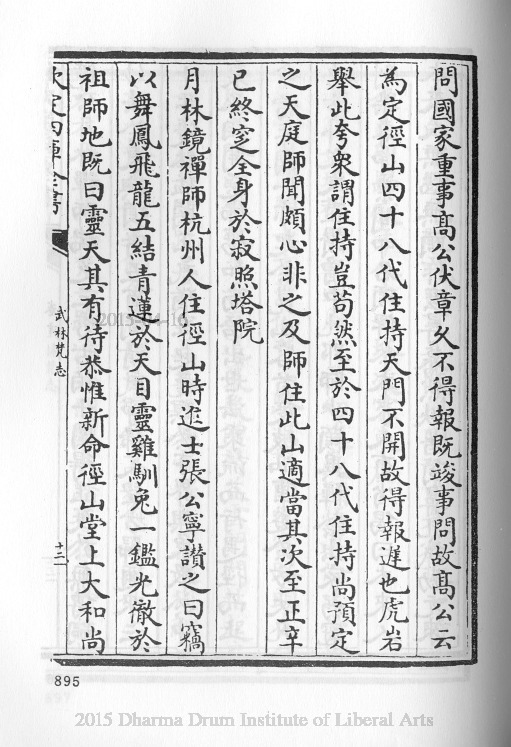 問國家重事髙公伏章乆不得報既竣事問故髙公云
為定徑山四十八代住持天門不開故得報遲也虎岩
舉此夸衆謂住持豈苟然至於四十八代住持尚預定
之天庭師聞頗心非之及師住此山適當其次至正辛
已終窆全身於寂照塔院
月林鏡禪師杭州人住徑山時進士張公寧讃之曰竊
以舞鳳飛龍五結青蓮於天目靈雞馴兔一鑑光徹於
祖師地既曰靈天其有待恭惟新命徑山堂上大和尚
欽定四庫全書
武林梵志
十二
895
2015 Dharma Drum Institute of Liberal Arts